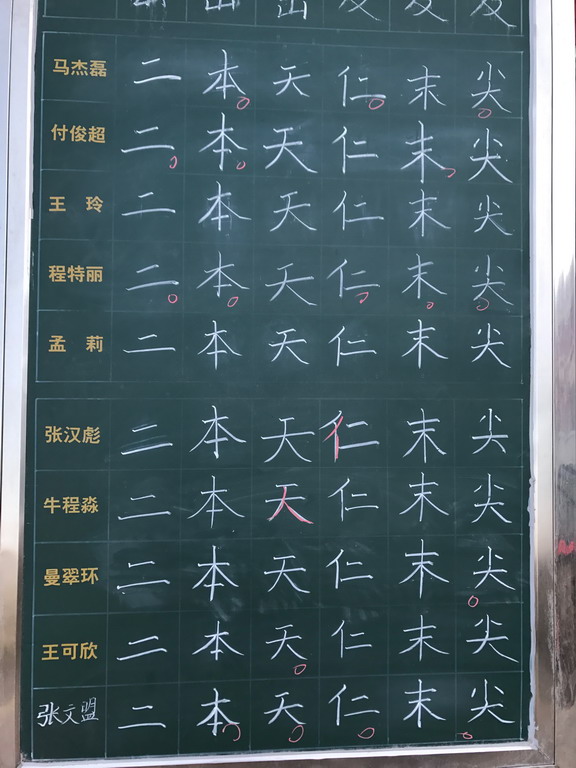 马杰磊 二 本 天 仁 末 尖
付俊超 二 本 天 仁 末 尖
王 玲 二 本 天 仁 末 尖
程特丽 二 本 天 仁 末 尖
孟 莉 二 本 天 仁 末 尖
张汉彪 二 本 天 仁 末 尖
牛程淼 二 本 天 仁 末 尖
曼翠环 二 本 天 仁 末 尖
王可欣 二 本 天 仁 末 尖
张文盟 二 本 天 仁 末 尖